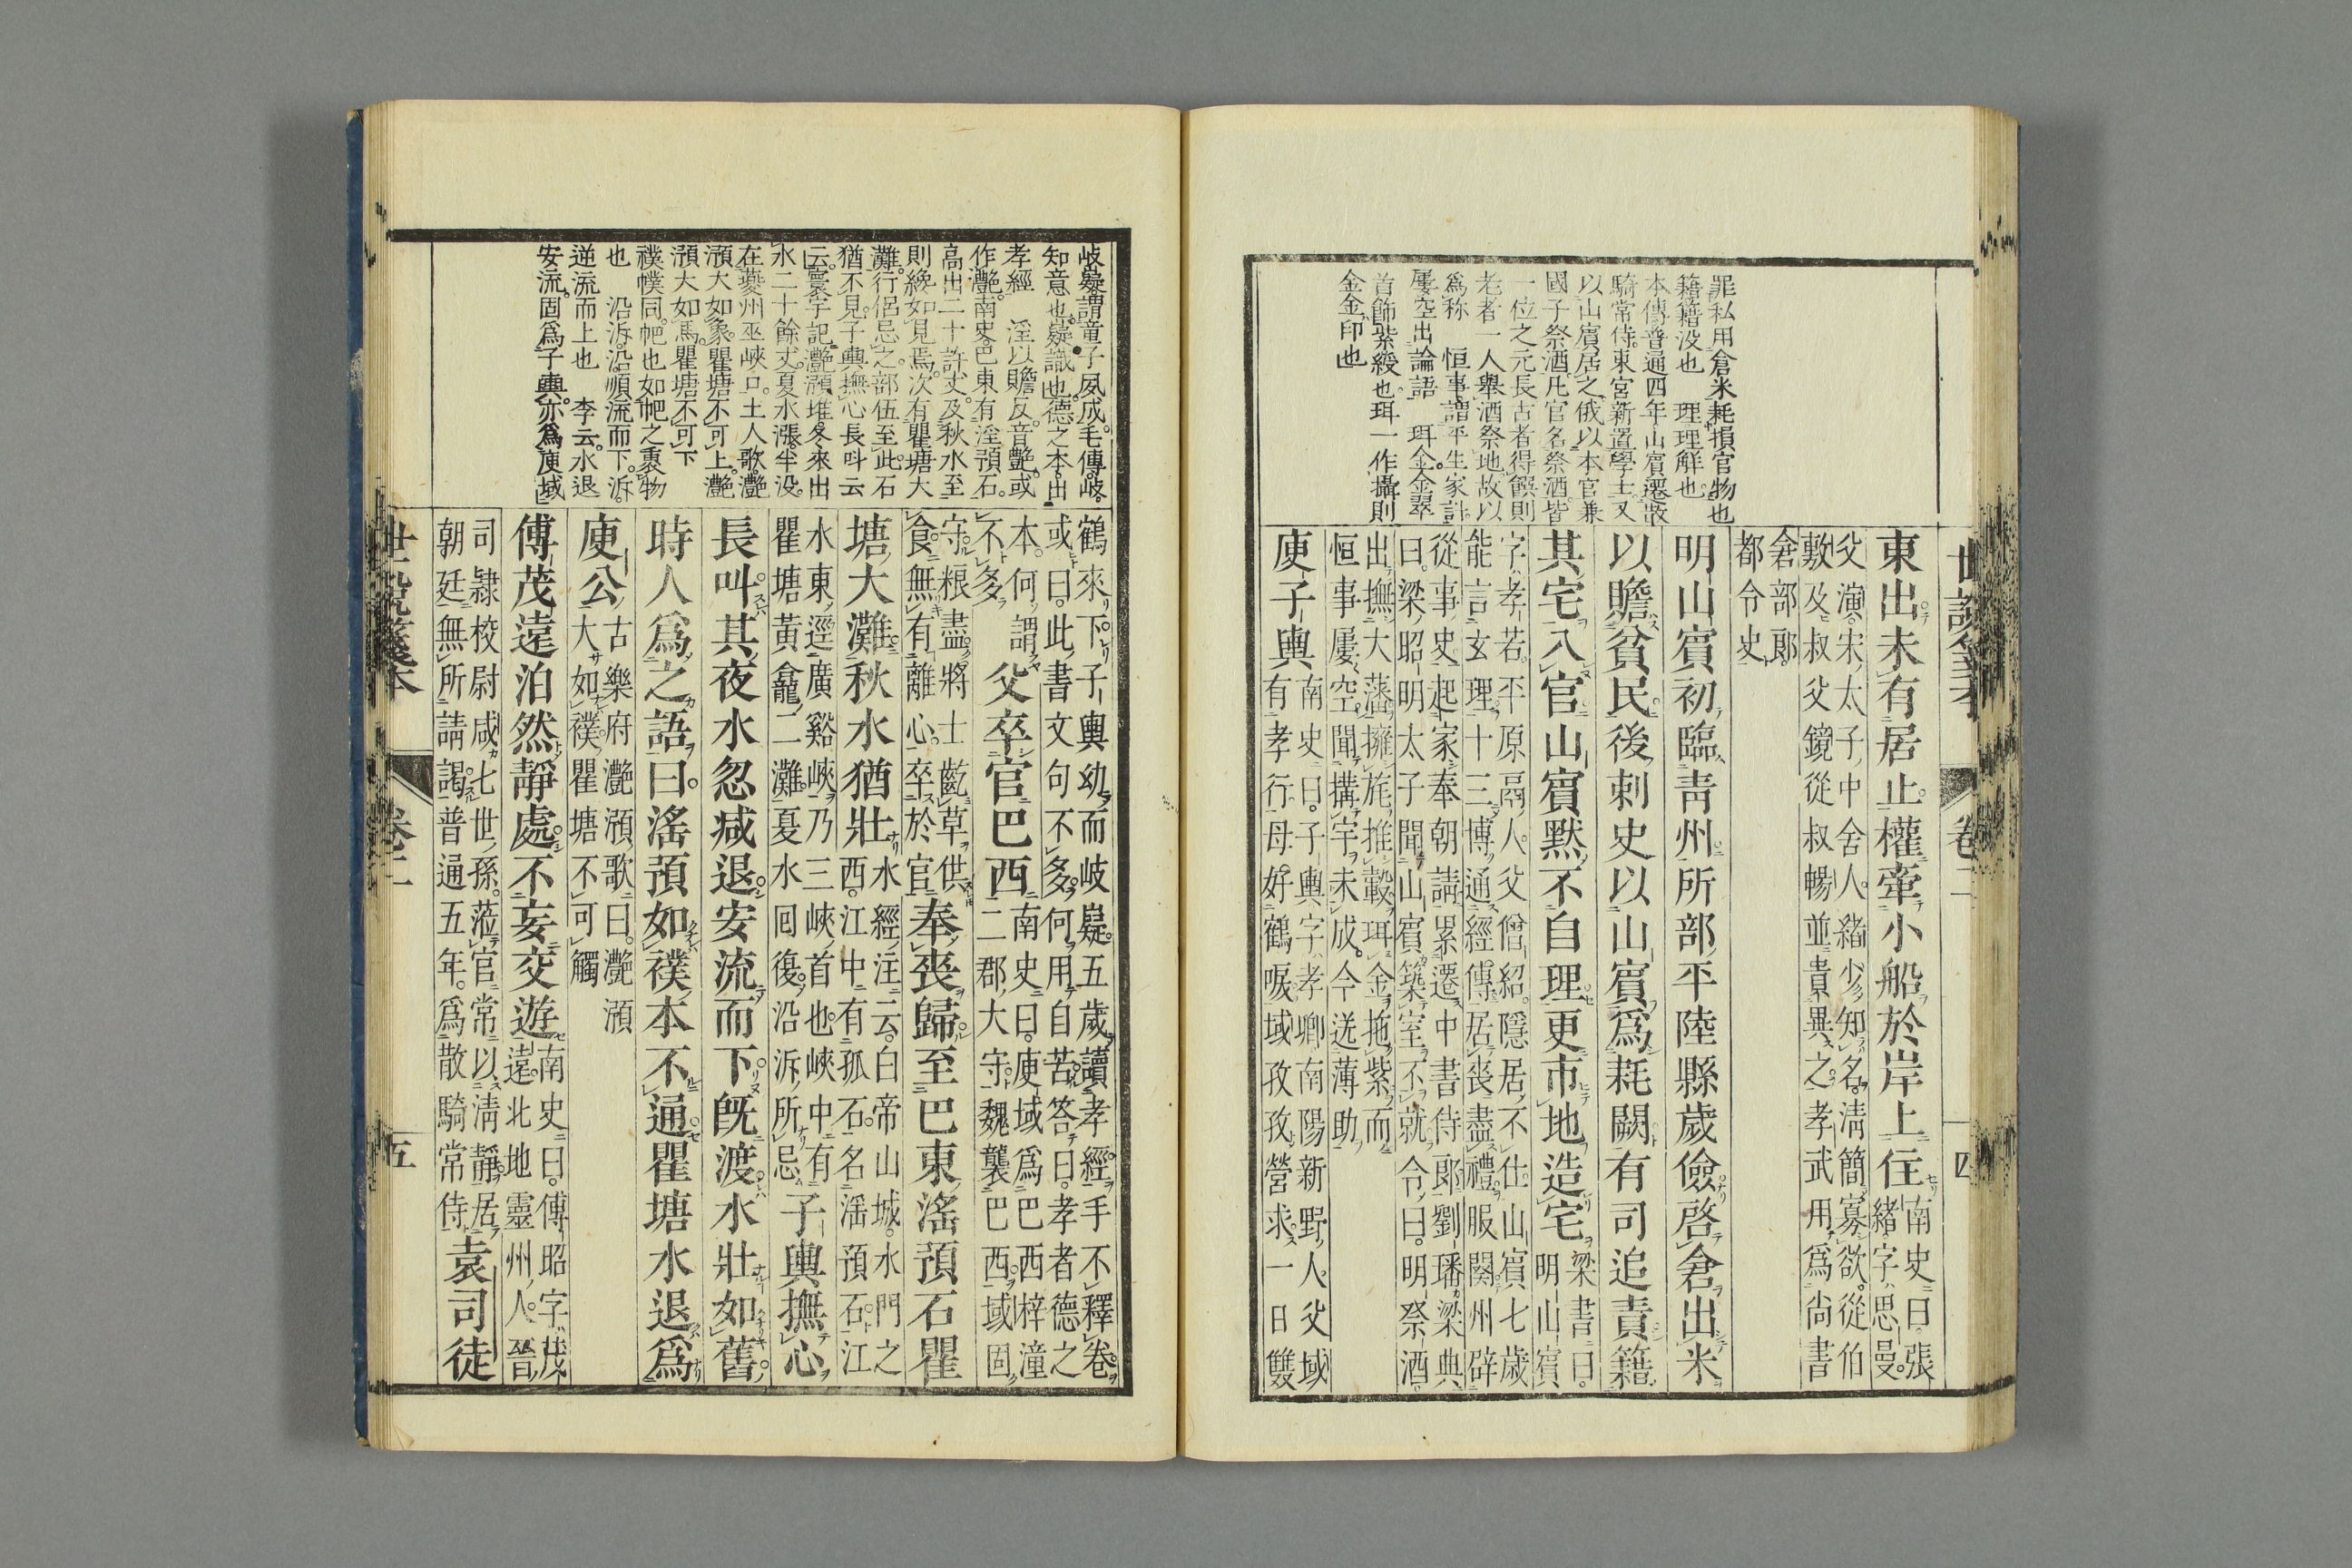 世說箋本
卷二
四
罪私用倉米耗損官物也
籍籍没也　理理解也
本傳普通四年山賓遷散
騎常侍東宮新置學士又
以山賓居之俄以本官兼
國子祭酒凡官名祭酒皆
一位之元長古者得饌則
老者一人舉酒祭地故以
爲称　恒事謂平生家計
屢空出論語　珥金金翠
首飾紫綬也珥一作攝則
金金印也
東出未有居止權牽小船於岸上住南史曰張
緒字思曼
父演宋太子中舍人緒少知名清簡寡欲從伯
敷及叔父鏡從叔暢並貴異之孝武用爲尚書
倉部郎
都令史
明山賓初臨青州所部平陸縣歲儉啓倉出米
以贍貧民後刺史以山賓爲耗闕有司追責籍
其宅入官山賓默不自理更市地造宅梁書曰
明山賓
字孝若平原鬲人父僧紹隱居不仕山賓七歲
能言玄理十三博通經傳居喪盡禮服闋州辟
從事史起家奉朝請累遷中書侍郎劉璠梁典
曰梁昭明太子聞山賓築室不就令曰明祭酒
出撫大藩擁旄推轂珥金拖紫而
恒事屢空聞搆宇未成今送薄助
庾子輿南史曰子輿字孝卿南陽新野人父域
有孝行母好鶴唳域孜孜營求一日雙
岐嶷謂童子夙成毛傳岐
知意也嶷識也德之本出
孝經　淫以贍反音艷或
作灔南史巴東有淫預石
高出二十許丈及秋水至
則纔如見焉次有瞿塘大
灘行侶忌之部伍至此石
猶不見子輿撫心長呌云
云寰宇記灔澦堆冬來出
水二十餘丈夏水漲半没
在夔州巫峽口土人歌灔
澦大如象瞿塘不可上灔
澦大如馬瞿塘不可下
襆幞同帊也如帊之裹物
也　沿泝沿順流而下泝
逆流而上也　李云水退
安流固爲子輿亦爲庾域
鶴來下子輿幼而岐嶷五歲讀孝經手不釋卷
或曰此書文句不多何用自苦答曰孝者德之
本何謂
不多
父卒官巴西南史曰庾域爲巴西梓潼
二郡大守魏襲巴西域固
守粮盡將士齕草供
食無有離心卒於官
奉喪歸至巴東滛預石瞿
塘大灘秋水猶壯水經注云白帝山城水門之
西江中有孤石名滛預石江
水東逕廣谿峽乃三峽首也峽中有
瞿塘黃龕二灘夏水回復沿泝所忌
子輿撫心
長呌其夜水忽减退安流而下旣渡水壯如舊
時人爲之語曰滛預如襆本不通瞿塘水退爲
庾公古樂府灔澦歌曰灔澦
大如襆瞿塘不可觸
傅茂遠泊然靜處不妄交遊南史曰傅昭字茂
遠北地靈州人晉
司隷校尉咸七世孫蒞官常以淸靜居
朝廷無所請謁普通五年爲散騎常侍
袁司徒
世說箋本
卷二
五